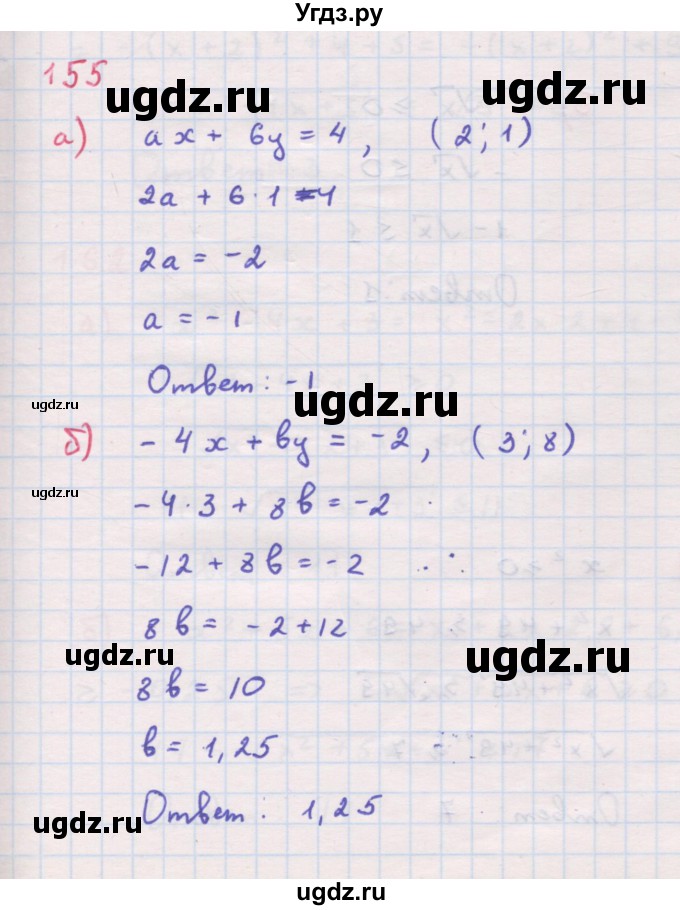 Угдз.ру
155
ugdz.ru ugdz.ru
а) ax + 6y = 4, (2; 1)
2a + 6·1 = 4
2a = -2
a = -1
Ответ: -1
ugdz.ru
ugdz.ru
б) -4x + вy = -2, (3; 8)
ugdz.ru
-4·3 + 8в = -2
-12 + 8в = -2
8в = -2+12
ugdz.ru ugdz.ru
8в = 10
в = 1,25
Ответ: 1,25
ugdz.ru ugdz.ru
ugdz.ru